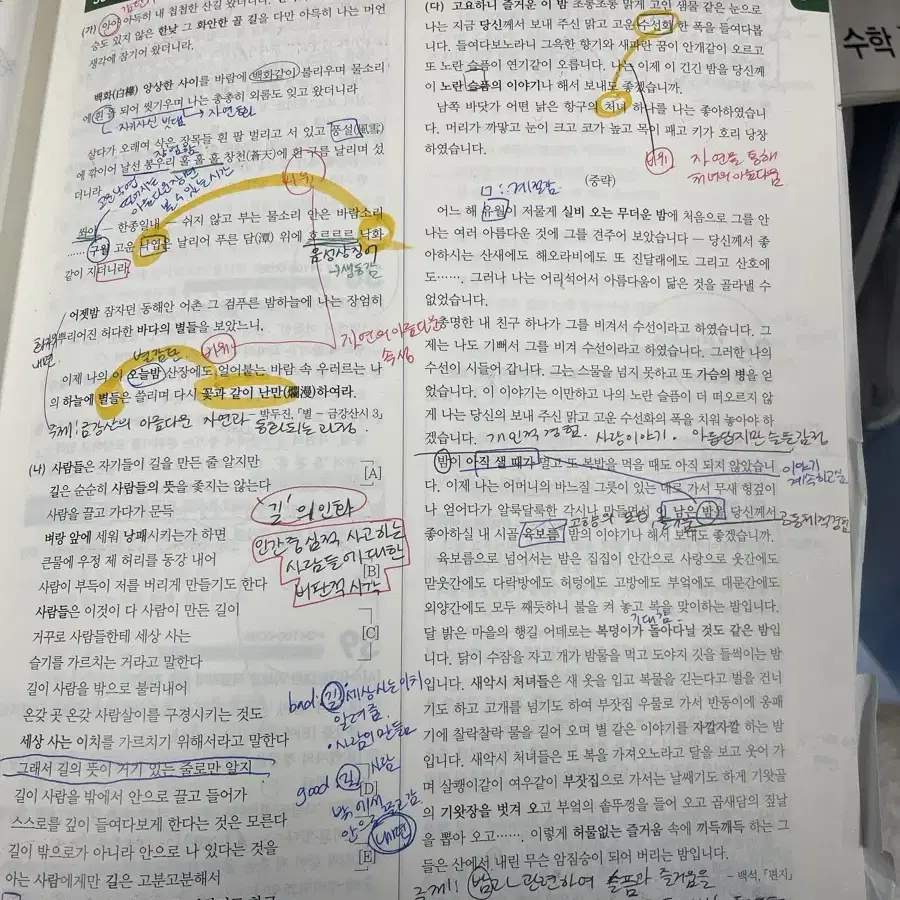 (가) 아아 아득히 내 첩첩한 산길 왔더니라.
승도 있지 않은 한낮 그 화안한 골 길을 다만 아득히 나는 머언
생각에 잠기어 왔더니라.
백화(白樺) 앙상한 사이를 바람에 백화같이 불리우며 물소리
에 흰 돌 되어 씻기우며 나는 총총히 외롬도 잊고 왔더니라
자기자신 빗댐 → 자연동화
살다가 오래여 삭은 장목들 흰 팔 벌리고 서 있고 풍설(風雪)
에 깎이어 날선 봉우리 훌 훌 훌 창천(蒼天)에 흰 구름 날리며 섰
더니라
비유
쏴아 ― 한종일내 ― 쉬지 않고 부는 물소리 안은 바람소리
…… 구월 고운 낙엽은 날리어 푸른 담(潭) 위에 흐르르르 낙화
같이 지더니라.
음성상징어
→생동감
어젯밤 잠자던 동해안 어촌 그 검푸른 밤하늘에 나는 장엄히
뿌리어진 허다한 바다의 별들을 보았느니,
비유
자연의 아름다운
속성
이제 나의 이 오늘밤 산장에도 얼어붙는 바람 속 우러르는 나
의 하늘에 별들은 쓸리며 다시 꽃과 같이 난만(爛漫)하여라.
- 박두진, 「별 - 금강산시 3」
주제: 금강산의 아름다운 자연과 동화되는 과정.
(나) 사람들은 자기들이 길을 만든 줄 알지만
[A]
길은 순순히 사람들의 뜻을 좇지는 않는다
사람을 끌고 가다가 문득
벼랑 앞에 세워 낭패시키는가 하면
큰물에 우정 제 허리를 동강 내어
[B]
사람이 부득이 저를 버리게 만들기도 한다
'길'의 인화
인간중심적 사고하는
사람들에 대한
비판적 시각
사람들은 이것이 다 사람이 만든 길이
거꾸로 사람들한테 세상 사는
[C]
슬기를 가르치는 거라고 말한다
길이 사람을 밖으로 불러내어
온갖 곳 온갖 사람살이를 구경시키는 것도
세상 사는 이치를 가르치기 위해서라고 말한다
그래서 길의 뜻이 거기 있는 줄로만 알지
[D]
길이 사람을 밖에서 안으로 끌고 들어가
스스로를 깊이 들여다보게 한다는 것은 모른다
길이 밖으로가 아니라 안으로 나 있다는 것을
[E]
아는 사람에게만 길은 고분고분해서
bad: 길 세상사는이치
알려줌.
·사람의 만듦
good 길 사람
밖에서 끌고감
안으로
내면
(다) 고요하니 즐거운 이 밤 초롱초롱 맑게 고인 샘물 같은 눈으로
나는 지금 당신께서 보내 주신 맑고 고운 수선화 한 폭을 들여다봅
니다. 들여다보노라니 그윽한 향기와 새파란 꿈이 안개같이 오르고
또 노란 슬픔이 연기같이 오릅니다. 나는 이제 이 긴긴 밤을 당신께
이 노란 슬픔의 이야기나 해서 보내도 좋겠습니까.
남쪽 바닷가 어떤 낡은 항구의 처녀 하나를 나는 좋아하였습니
다. 머리가 까맣고 눈이 크고 코가 높고 목이 패고 키가 호리 낭창
하였습니다.
비유
자연을 통해
처녀의 아름다움
□: 계절감
(중략)
어느 해 유월이 저물게 실비 오는 무더운 밤에 처음으로 그를 안
나는 여러 아름다운 것에 그를 견주어 보았습니다 ― 당신께서 좋
아하시는 산새에도 해오라비에도 또 진달래에도 그리고 산호에
도……. 그러나 나는 어리석어서 아름다움이 닮은 것을 골라낼 수
없었습니다.
총명한 내 친구 하나가 그를 비겨서 수선이라고 하였습니다. 그
제는 나도 기뻐서 그를 비겨 수선이라고 하였습니다. 그러한 나의
수선이 시들어 갑니다. 그는 스물을 넘지 못하고 또 가슴의 병을 얻
었습니다. 이 이야기는 이만하고 나의 노란 슬픔이 더 떠오르지 않
게 나는 당신의 보내 주신 맑고 고운 수선화의 폭을 치워 놓아야 하
겠습니다.
개인적 경험. 사랑이야기. 아름답지만 슬픈감정
밤이 아직 샐 때가 멀고 또 복밥을 먹을 때도 아직 되지 않았습니
다. 이제 나는 어머니의 바느질 그릇이 있는 데로 가서 무새 헝겊이
나 얻어다가 알룩달룩한 각시나 만들면서 이 남은 밤을 당신께서
좋아하실 내 시골 육보름 밤의 이야기나 해서 보내도 좋겠습니까.
이야기
계속하고싶
공동체적경험
육보름으로 넘어서는 밤은 집집이 안간으로 사랑으로 웃간에도
맏웃간에도 다락방에도 허텅에도 고방에도 부엌에도 대문간에도
외양간에도 모두 째듯하니 불을 켜 놓고 복을 맞이하는 밤입니다.
기대감.
달 밝은 마을의 행길 어데로는 복덩이가 돌아다닐 것도 같은 밤입
니다. 닭이 수잠을 자고 개가 밤물을 먹고 도야지 깃을 들썩이는 밤
입니다. 새악시 처녀들은 새 옷을 입고 복물을 긷는다고 벌을 건너
기도 하고 고개를 넘기도 하여 부잣집 우물로 가서 반동이에 옹패
기에 찰락찰락 물을 길어 오며 별 같은 이야기를 자깔자깔 하는 밤
입니다. 새악시 처녀들은 또 복을 가져오노라고 달을 보고 웃어 가
며 살쾡이같이 여우같이 부잣집으로 가서는 날쌔기도 하게 기왓골
의 기왓장을 벗겨 오고 부엌의 솥뚜껑을 들어 오고 곱새담의 짚날
을 뽑아 오고……. 이렇게 허물없는 즐거움 속에 끼득깨득 하는 그
들은 산에서 내린 무슨 암짐승이 되어 버리는 밤입니다.
- 백석, 「편지」
주제: 밤과 관련하여 슬픔과 즐거움을
수학